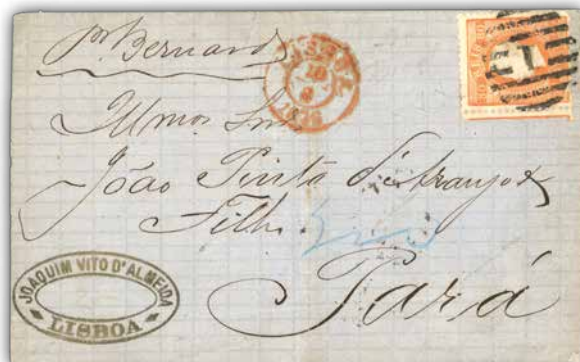 pr Bernard
LISBOA
Illmos Snrs
João Pinto d'Araujo &
Filho
Pará
JOAQUIM VITO D'ALMEIDA
LISBOA